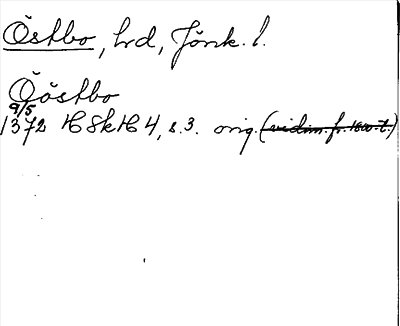 Östbo, hrd, Jönk. l.
Öóstbo
9/5
1372 HSkH 4, s. 3. orig. (vidim. fr. 1500-t.)